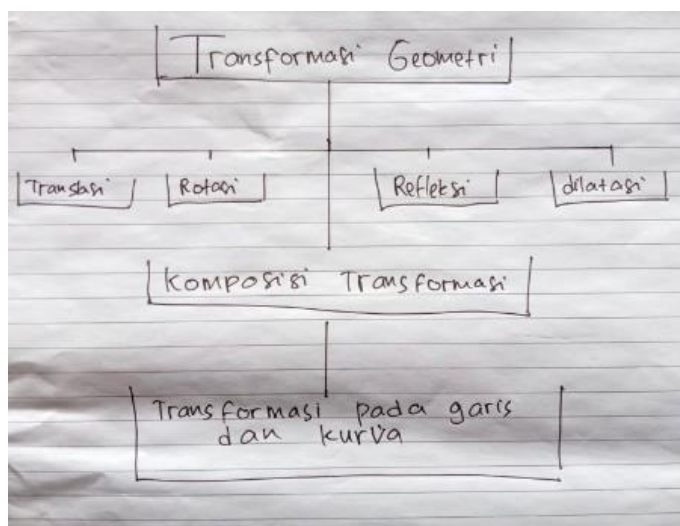 Transformasi Geometri
Translasi Rotasi Refleksi dilatasi
Komposisi Transformasi
Transformasi pada garis
dan kurva